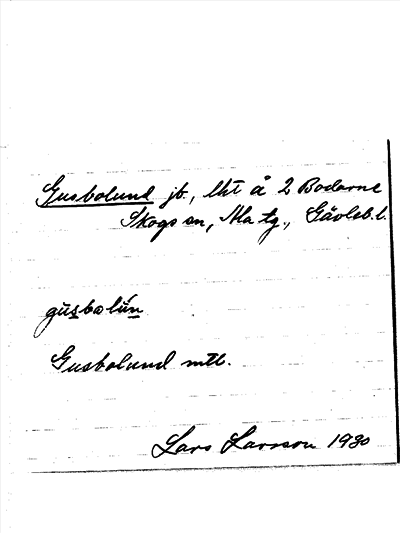 Gusbolund jb., lht å 2 Bodarne
Skogs sn, Ala tg., Gävleb.l.
gu̅sbolún
Gusbolund mtl.
Lars Larsson 1930